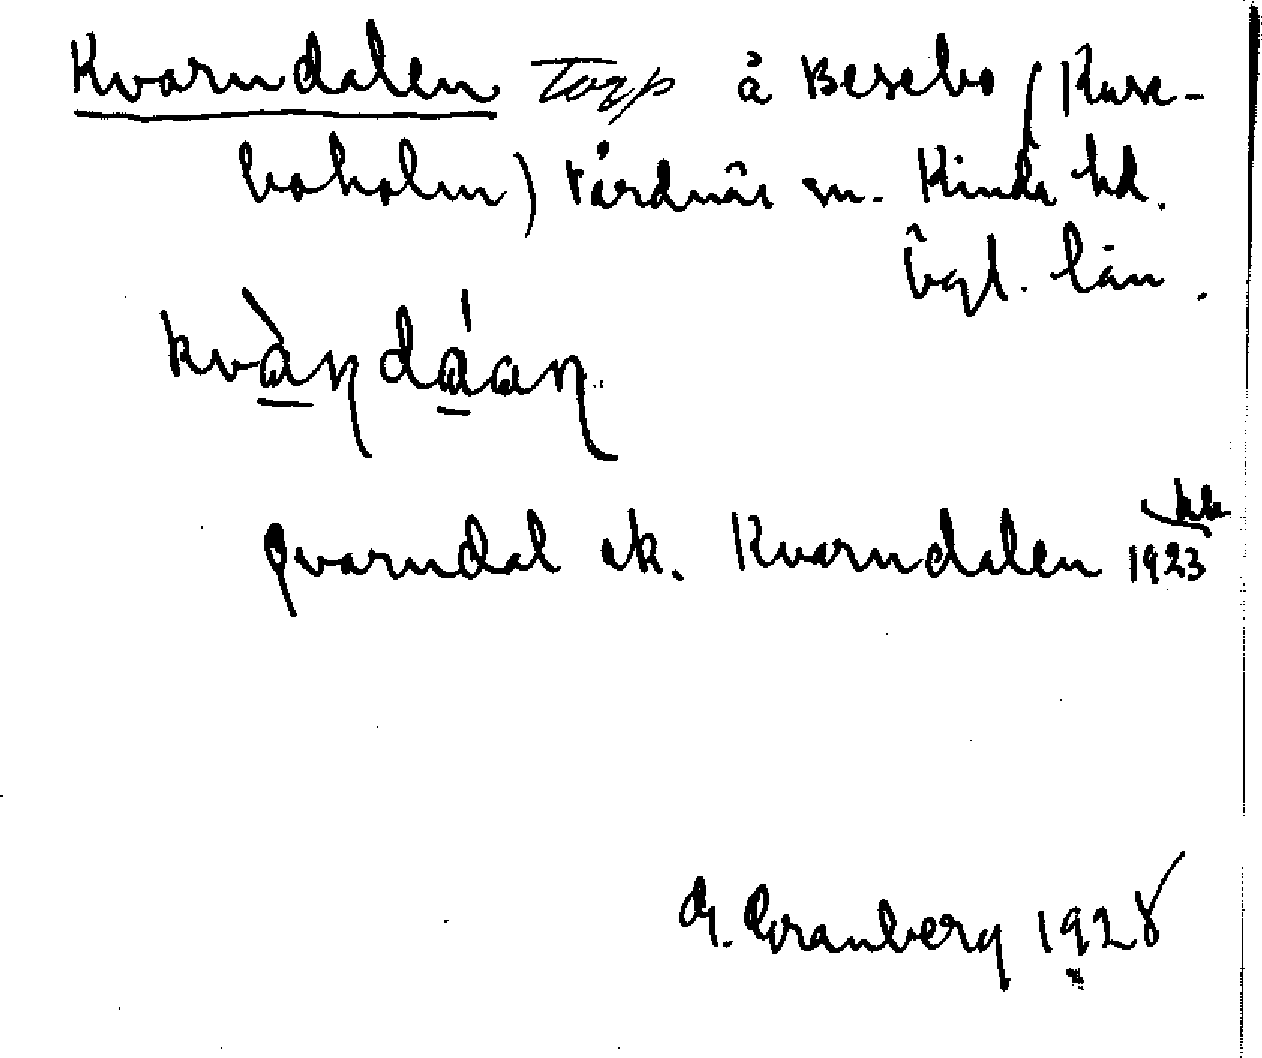 Kvarndalen Torp å Besebo (Kuse-
boholm) Tårdnäs sn. Kinda hd.
Ögl. län.
kvàṇdáaṇ
Qvarndal ek. Kvarndalen 1923
G. Granberg 1928